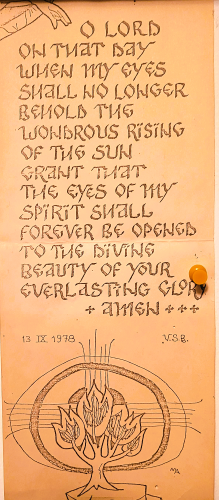 O LORD
ON THAT DAY
WHEN MY EYES
SHALL NO LONGER
BEHOLD THE
WONDROUS RISING
OF THE SUN
GRANT THAT
THE EYES OF MY
SPIRIT SHALL
FOREVER BE OPENED
TO THE DIVINE
BEAUTY OF YOUR
EVERLASTING GLOR
+ AMEN + + +
13 IX 1978 V.S.B.